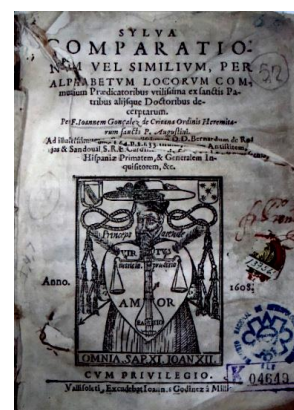 SYLVA
COMPARATIO-
NVM VEL SIMILIVM, PER
ALPHABETVM LOCORVM COM-
munium Prædicatoribus vtilissima ex sanctis Pa-
tribus alijsque Doctoribus de-
cerptarum.
Per F. Ioannem Gonçalez de Critana Ordinis Heremita-
rum sancti P. Augustini.
Bernardum de Ro-
jas & Sandoual, S. R. E.
Hispaniæ Primatem, & Generalem In-
quisitorem, &c.
52
Anno.
1608.
VIR TVS
AM OR
OMNIA. SAP. XI. IOAN XII.
CVM PRIVILEGIO.
K 04649
Vallisoleti, Excudebat Ioannes Godinez à